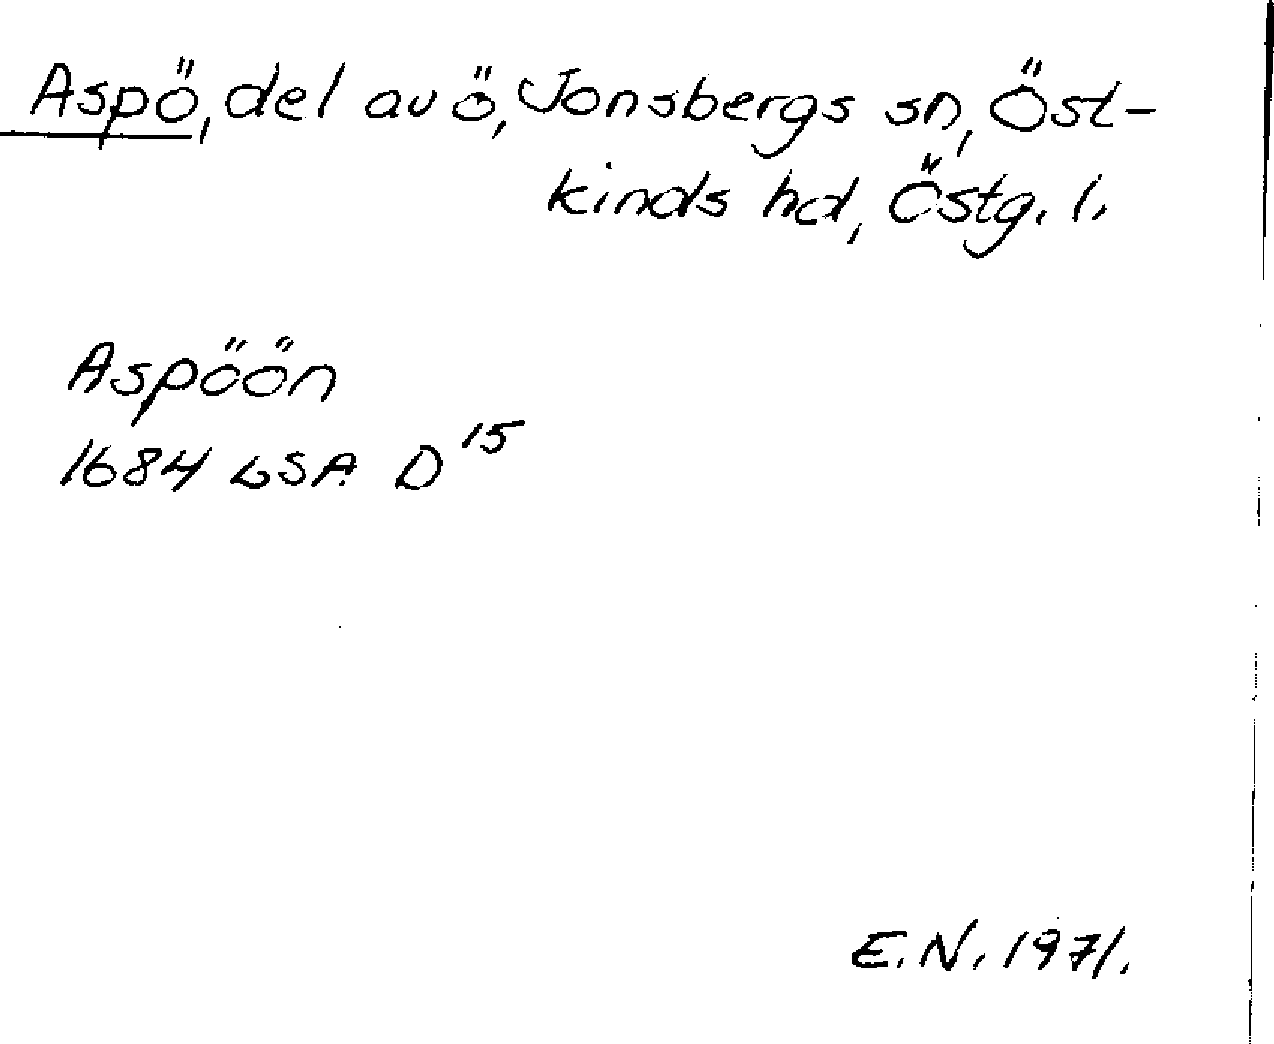 Aspö, del av ö, Jonsbergs sn, Öst-
kinds hd, Östg. l.
Aspöön
1684 LSA D 15
E.N. 1971.